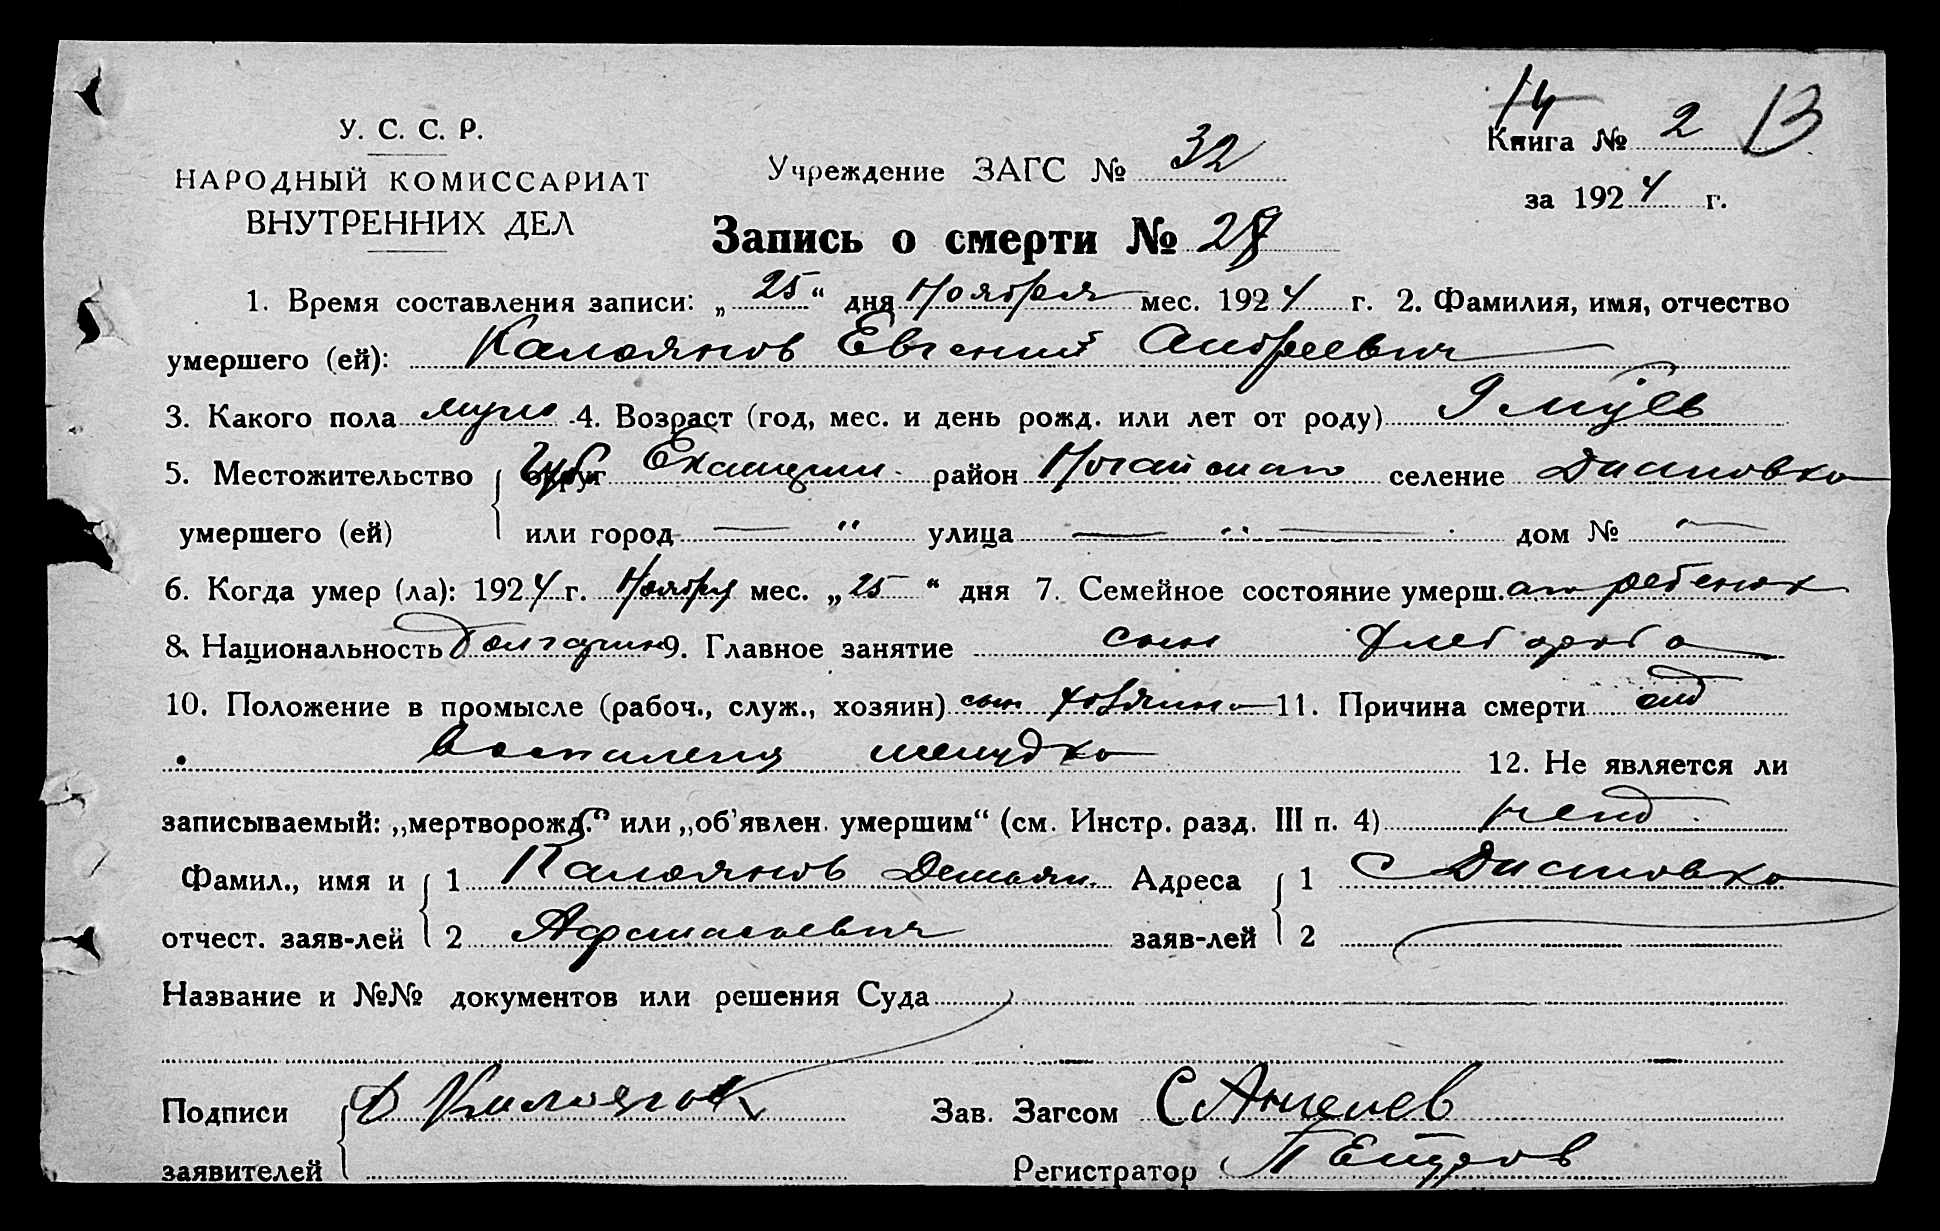 14
Книга № 2 13
за 1924 г.
У. С. С. Р.
НАРОДНЫЙ КОМИССАРИАТ
ВНУТРЕННИХ ДЕЛ
Учреждение ЗАГС № 32
Запись о смерти № 28
1. Время составления записи: „25“ дня Ноября мес. 1924 г. 2. Фамилия, имя, отчество
умершего (ей): Калоянов Евгений Андреевич
3. Какого пола муж 4. Возраст (год, мес. и день рожд. или лет от роду)
5. Местожительство Губ район селение Дияновка
умершего (ей) или город — " улица — " — дом № —
6. Когда умер (ла): 1924 г. Ноября мес. „25“ дня 7. Семейное состояние умерш. ребенок
8. Национальность 9. Главное занятие сын хлебороба
10. Положение в промысле (рабоч., служ., хозяин) сын хозяина 11. Причина смерти от
воспаления желудка 12. Не является ли
записываемый: „мертворожд.“ или „об’явлен. умершим“ (см. Инстр. разд. III п. 4) нет
Фамил., имя и 1 Калоянов Демьян Адреса 1 С Дияновка
отчест. заяв-лей 2 Афанасьевич заяв-лей 2
Название и №№ документов или решения Суда
Подписи Д Калоянов Зав. Загсом
заявителей Регистратор Петров